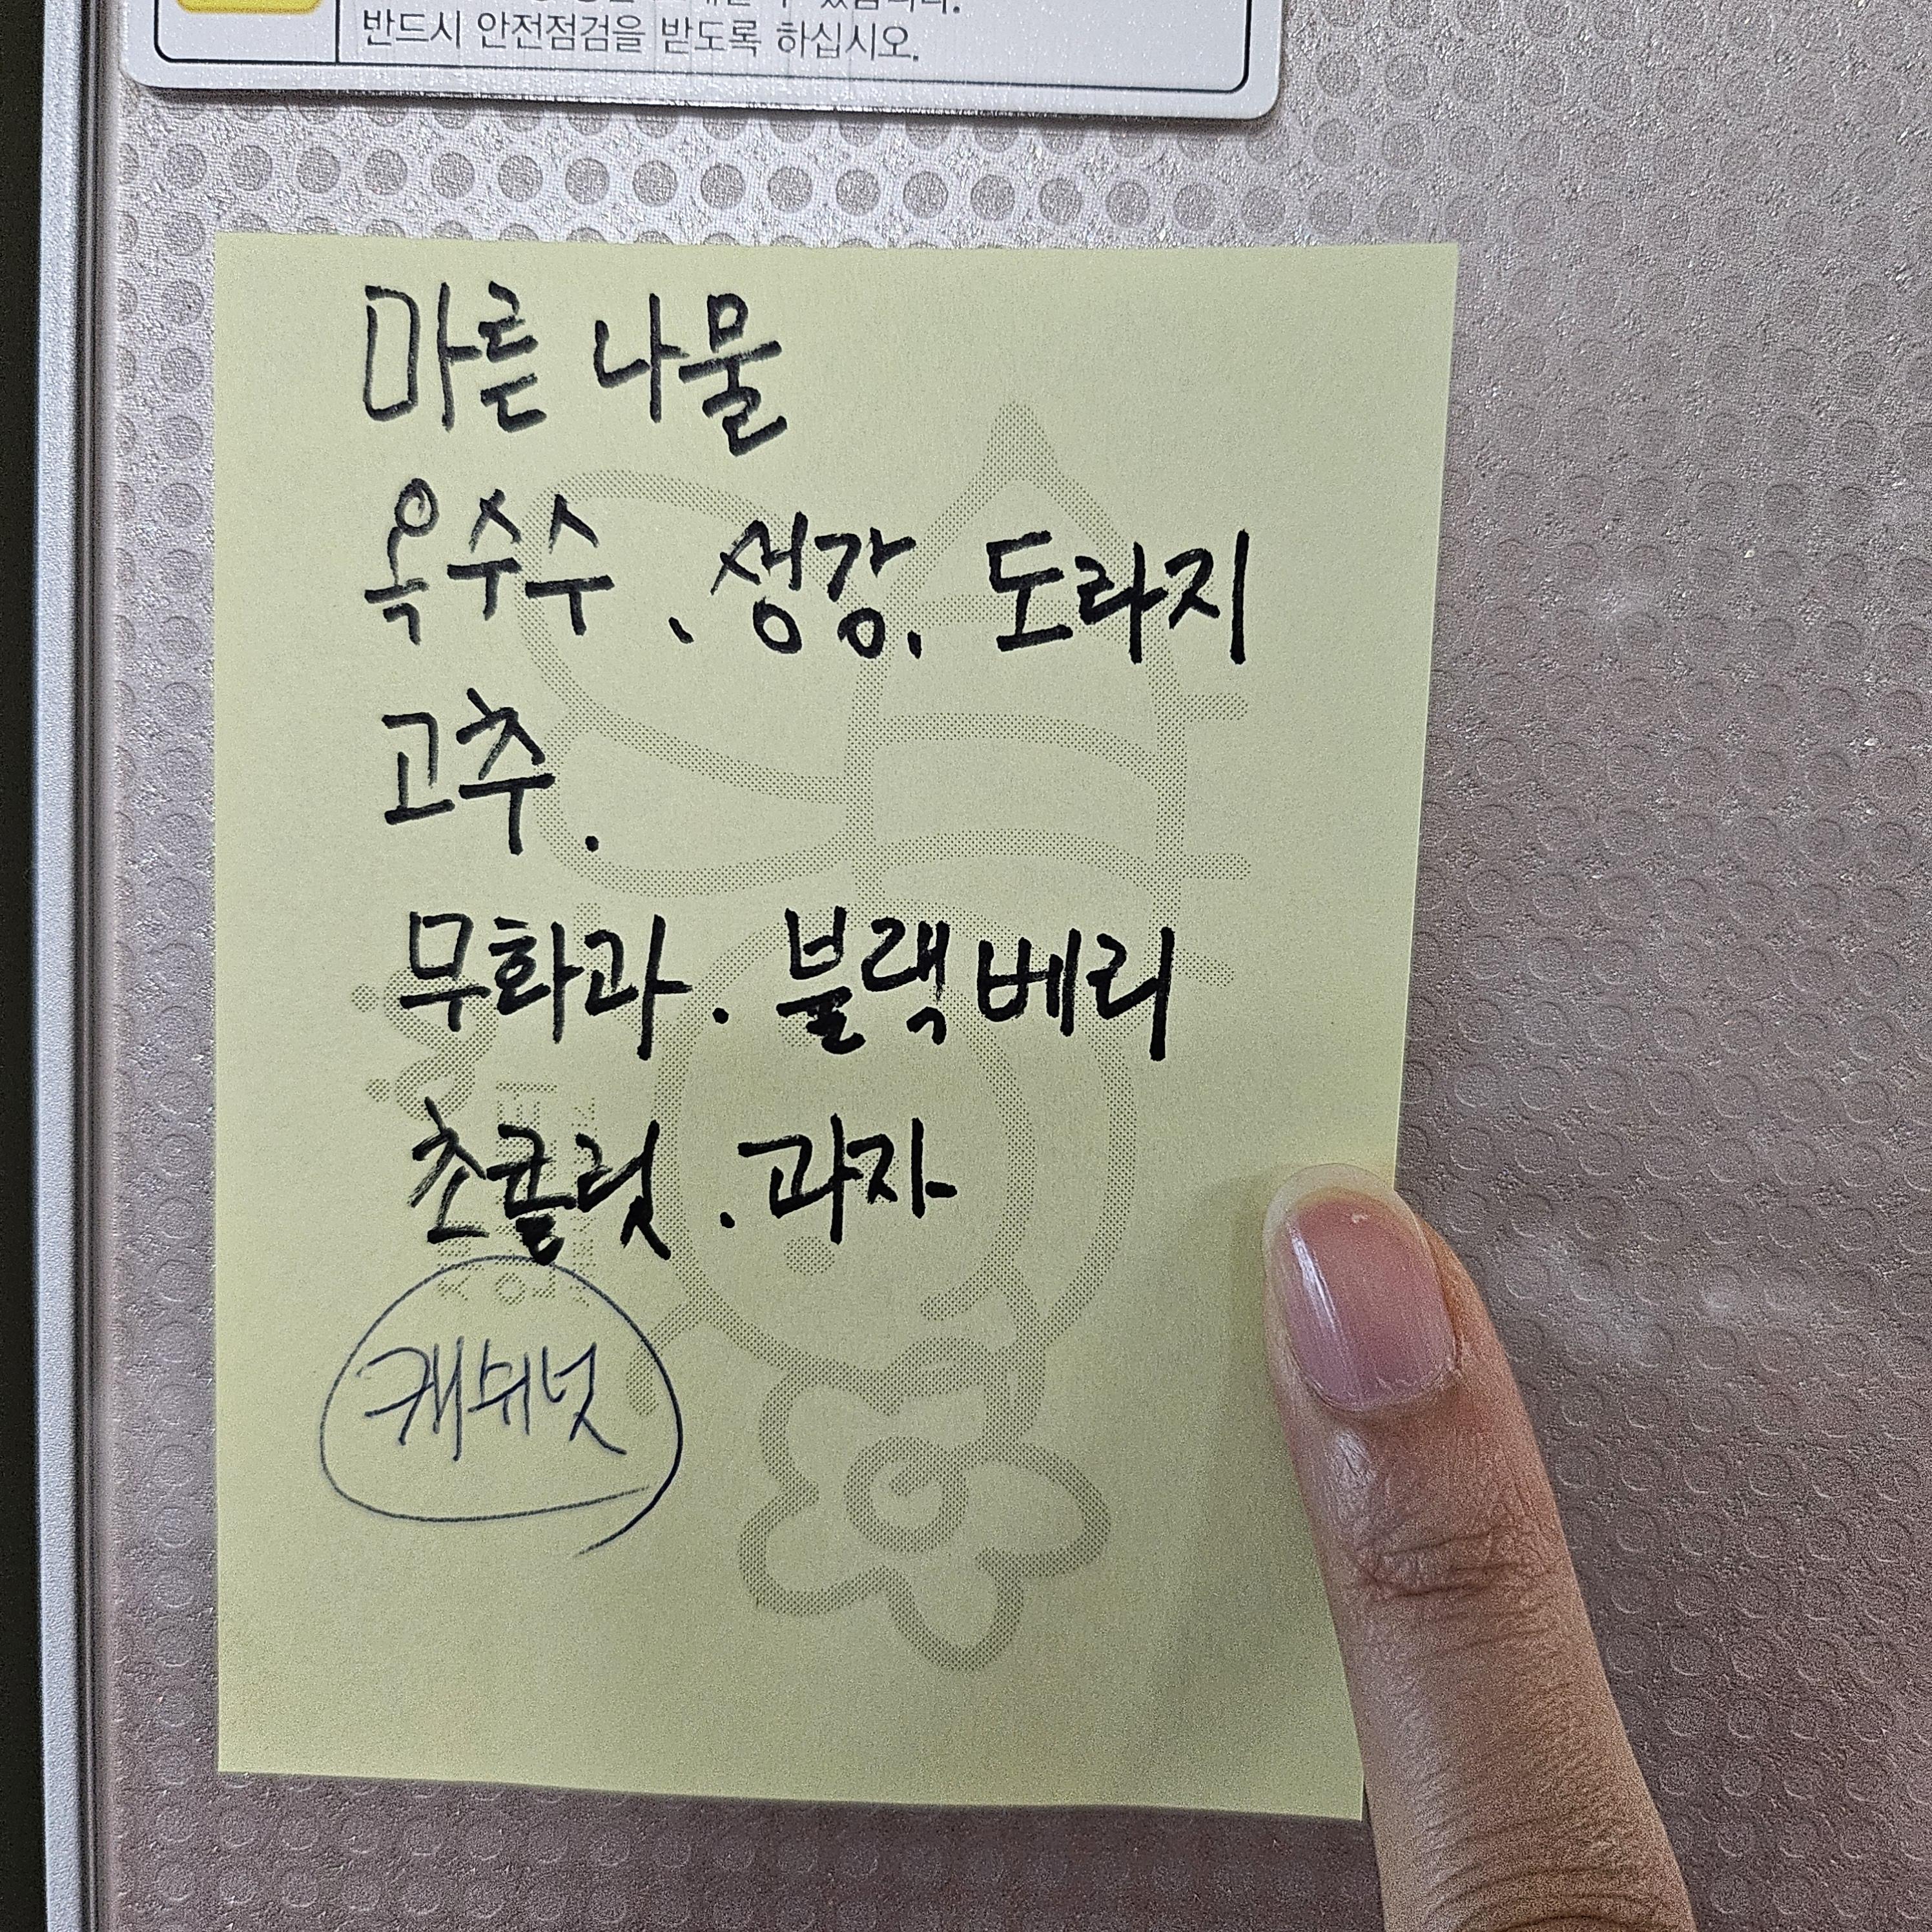 반드시 안전점검을 받도록 하십시오.
마른 나물
옥수수, 성강, 도라지
고추.
무화과. 블랙베리
초콜릿. 과자
캐쉬넛